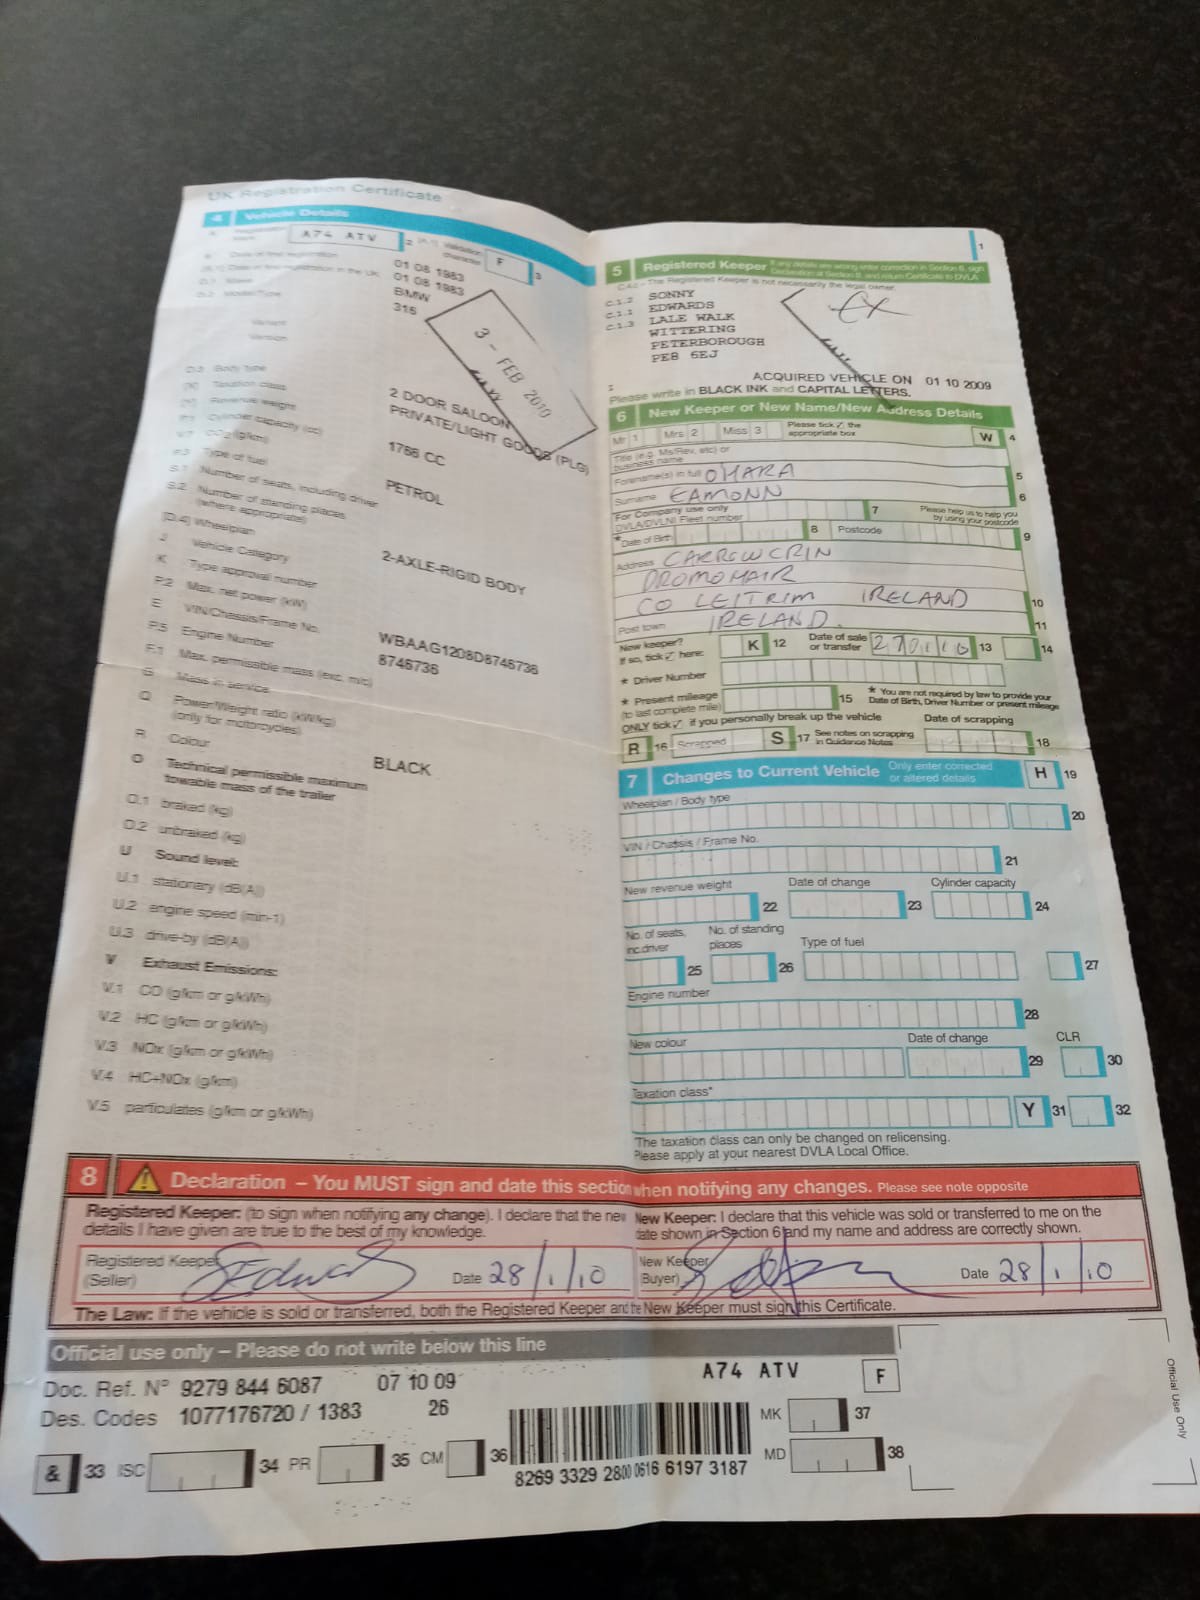 UK Registration Certificate
4 Vehicle Details
A Registration Mark A74 ATV 2 [A.1] Validation character F 3
B Date of first registration 01 08 1983
[B.1] Date of first registration in the UK 01 08 1983
D.1 Make BMW
D.2 Model/Type 316
Variant
Version
3 - FEB 2010
D.5 Body type 2 DOOR SALOON
[X] Taxation class PRIVATE/LIGHT GOODS (PLG)
[Y] Revenue weight
P.1 Cylinder capacity (cc) 1766 CC
V.7 CO2 (g/km)
P.3 Type of fuel PETROL
S.1 Number of seats, including driver
S.2 Number of standing places (where appropriate)
[D.4] Wheelplan 2-AXLE-RIGID BODY
J Vehicle Category
K Type approval number
P.2 Max. net power (kW)
E VIN/Chassis/Frame No. WBAAG1208D8746736
P.5 Engine Number 8746736
F.1 Max. permissible mass (exc. m/c)
G Mass in service
Q Power/Weight ratio (kW/kg)
(only for motorcycles)
R Colour BLACK
O Technical permissible maximum
towable mass of the trailer
O.1 braked (kg)
O.2 unbraked (kg)
U Sound level:
U.1 stationary (dB(A))
U.2 engine speed (min-1)
U.3 drive-by (dB(A))
V Exhaust Emissions:
V.1 CO (g/km or g/kWh)
V.2 HC (g/km or g/kWh)
V.3 NOx (g/km or g/kWh)
V.4 HC+NOx (g/km)
V.5 particulates (g/km or g/kWh)
1
5 Registered Keeper If any details are wrong enter correction in Section 6, sign
Declaration at Section 8, and return Certificate to DVLA
C.4.c - The Registered Keeper is not necessarily the legal owner.
C.1.2 SONNY
C.1.1 EDWARDS
C.1.3 LALE WALK
WITTERING
PETERBOROUGH
PE8 6EJ
ACQUIRED VEHICLE ON 01 10 2009
Please write in BLACK INK and CAPITAL LETTERS.
6 New Keeper or New Name/New Address Details
Mr 1 Mrs 2 Miss 3 Please tick ✓ the appropriate box W 4
Title (e.g. Ms/Rev, etc) or
business name
Forename(s) in full OHARA 5
Surname EAMONN 6
For Company use only
DVLA/DVLNI Fleet number 7 Please help us to help you
by using your postcode
* Date of Birth 8 Postcode 9
Address CARROWCRIN
DROMOHAIR
CO LEITRIM IRELAND 10
Post town IRELAND. 11
New keeper?
If so, tick ✓ here: K 12 Date of sale or transfer 270110 13 14
* Driver Number
* Present mileage
(to last complete mile) 15 * You are not required by law to provide your
Date of Birth, Driver Number or present mileage
ONLY tick ✓ if you personally break up the vehicle Date of scrapping
R 16 Scrapped S 17 See notes on scrapping
in Guidance Notes 18
7 Changes to Current Vehicle Only enter corrected
or altered details H 19
Wheelplan / Body type 20
VIN / Chassis / Frame No. 21
New revenue weight Date of change Cylinder capacity
22 23 24
No. of seats, inc.driver No. of standing places Type of fuel
25 26 27
Engine number 28
New colour Date of change CLR
29 30
Taxation class* Y 31 32
*The taxation class can only be changed on relicensing.
Please apply at your nearest DVLA Local Office.
8 Declaration – You MUST sign and date this section when notifying any changes. Please see note opposite
Registered Keeper: (to sign when notifying any change). I declare that the new
details I have given are true to the best of my knowledge.
New Keeper: I declare that this vehicle was sold or transferred to me on the
date shown in Section 6 and my name and address are correctly shown.
Registered Keeper
(Seller) SEdwards Date 28/1/10
New Keeper
(Buyer) Date 28/1/10
The Law: If the vehicle is sold or transferred, both the Registered Keeper and the New Keeper must sign this Certificate.
Official use only – Please do not write below this line
Doc. Ref. Nº 9279 844 6087 07 10 09 A74 ATV F
Des. Codes 1077176720 / 1383 26
MK 37
& 33 ISC 34 PR 35 CM 36 MD 38
8269 3329 2800 0616 6197 3187
Official Use Only